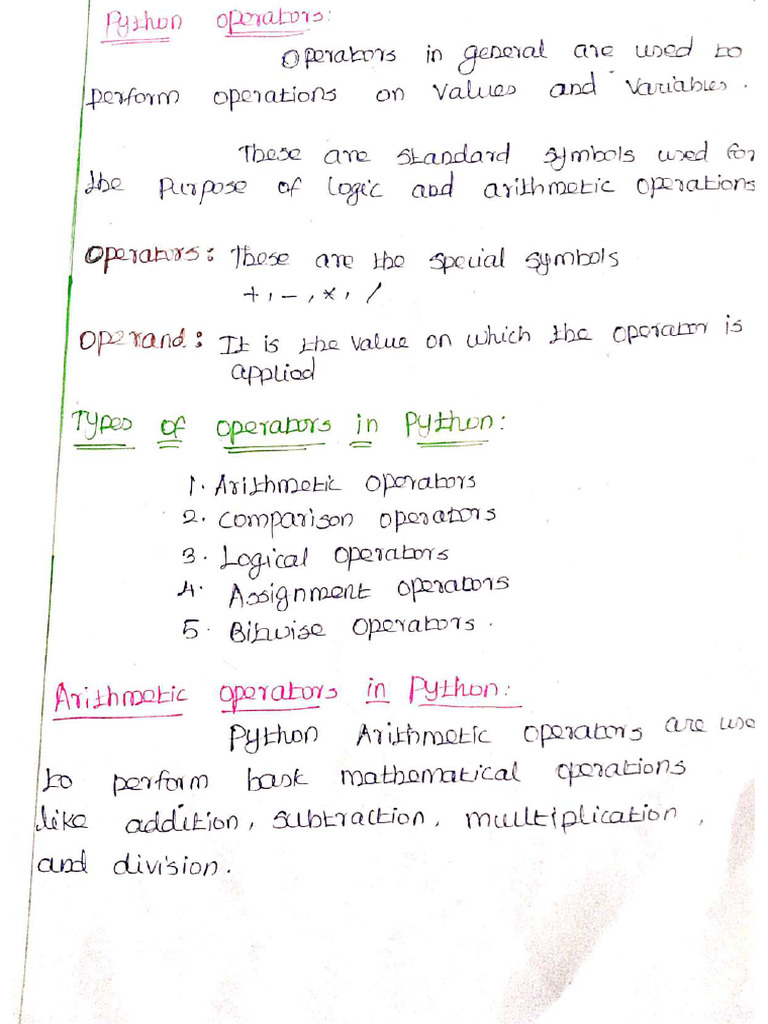 Python operators:
Operators in general are used to
perform operations on values and variables.
These are standard symbols used for
the purpose of logic and arithmetic operations
Operators: These are the special symbols
+, -, *, /
Operand: It is the value on which the operator is
applied
Types of operators in Python:
1. Arithmetic operators
2. Comparison operators
3. Logical operators
4. Assignment operators
5. Bitwise operators.
Arithmetic operators in Python:
Python Arithmetic operators are use
to perform basic mathematical operations
like addition, subtraction, multiplication,
and division.